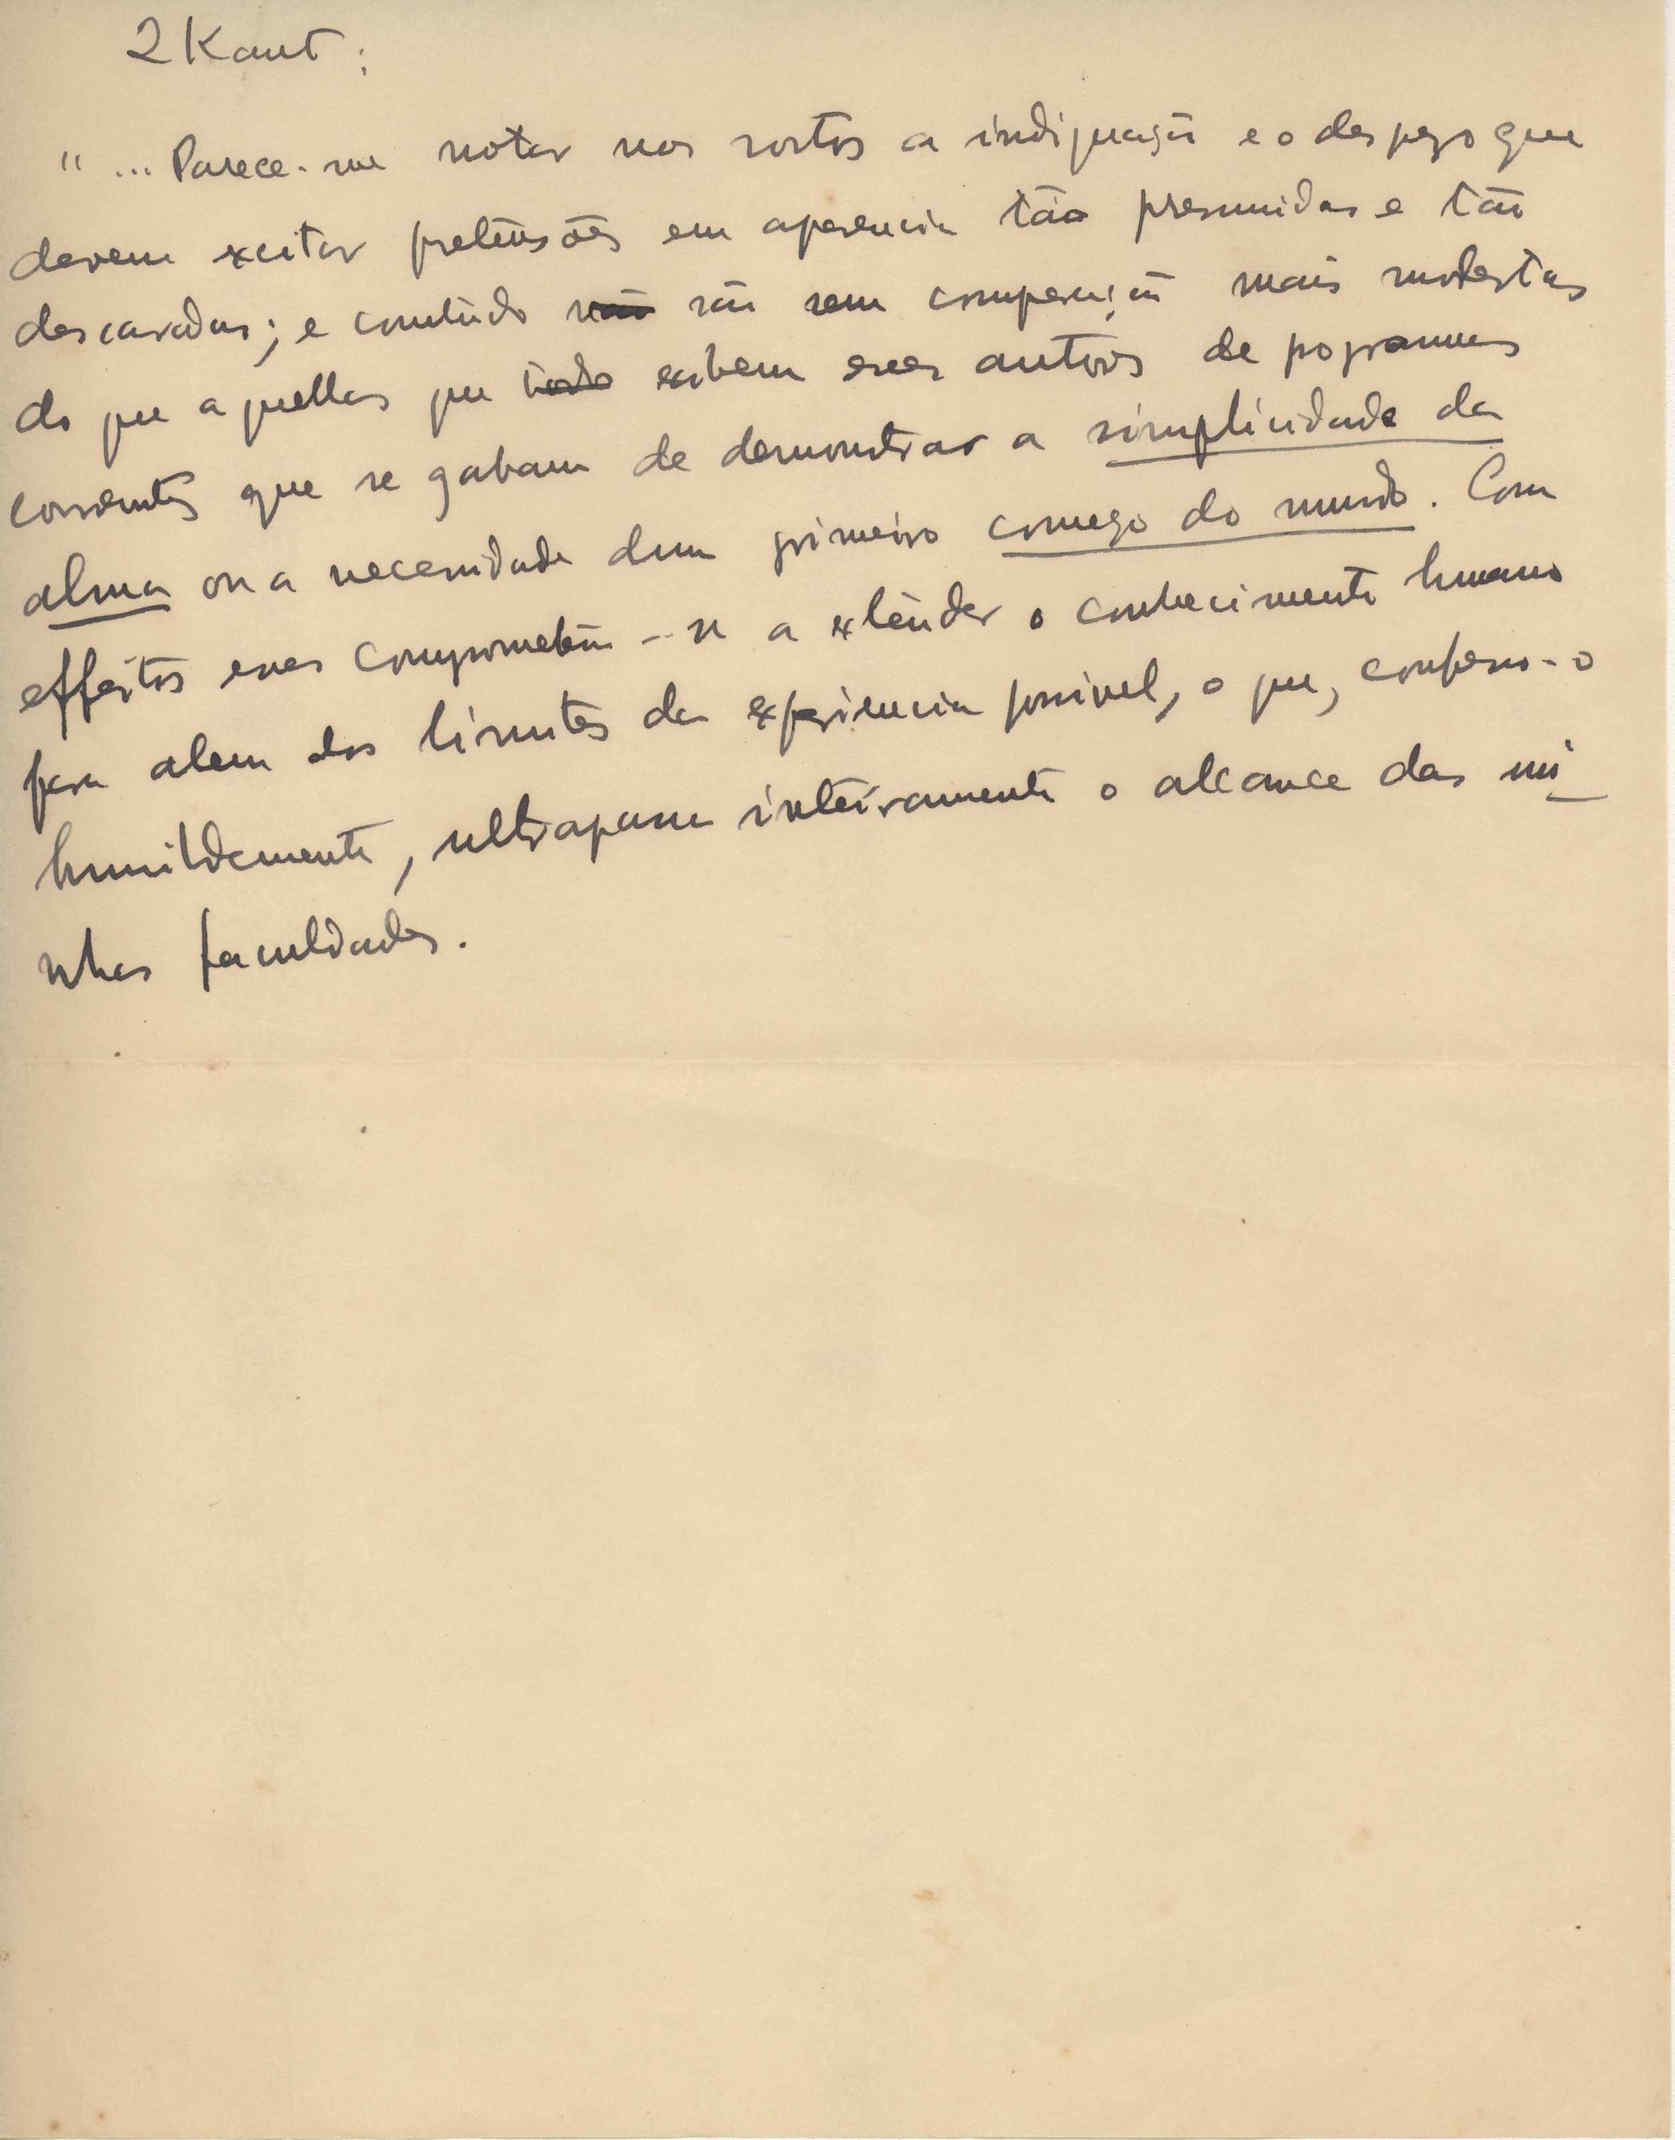 2 Kant:
"... Parece-me notar nos rostos a indignação e o desprezo que
devem excitar pretensões em aparencia tão presumidas e tão
descaradas; e contudo não são sem comparação mais modestas
do que aquellas que todo exibem esses autores de programas
correntes que se gabam de demonstrar a simplicidade da
alma ou a necessidade dum primeiro começo do mundo. Com
effeito esses comprometem-se a extender o conhecimento humano
para alem dos limites da experiencia possivel, o que, confesso-o
humildemente, ultrapassa inteiramente o alcance das mi
nhas faculdades.